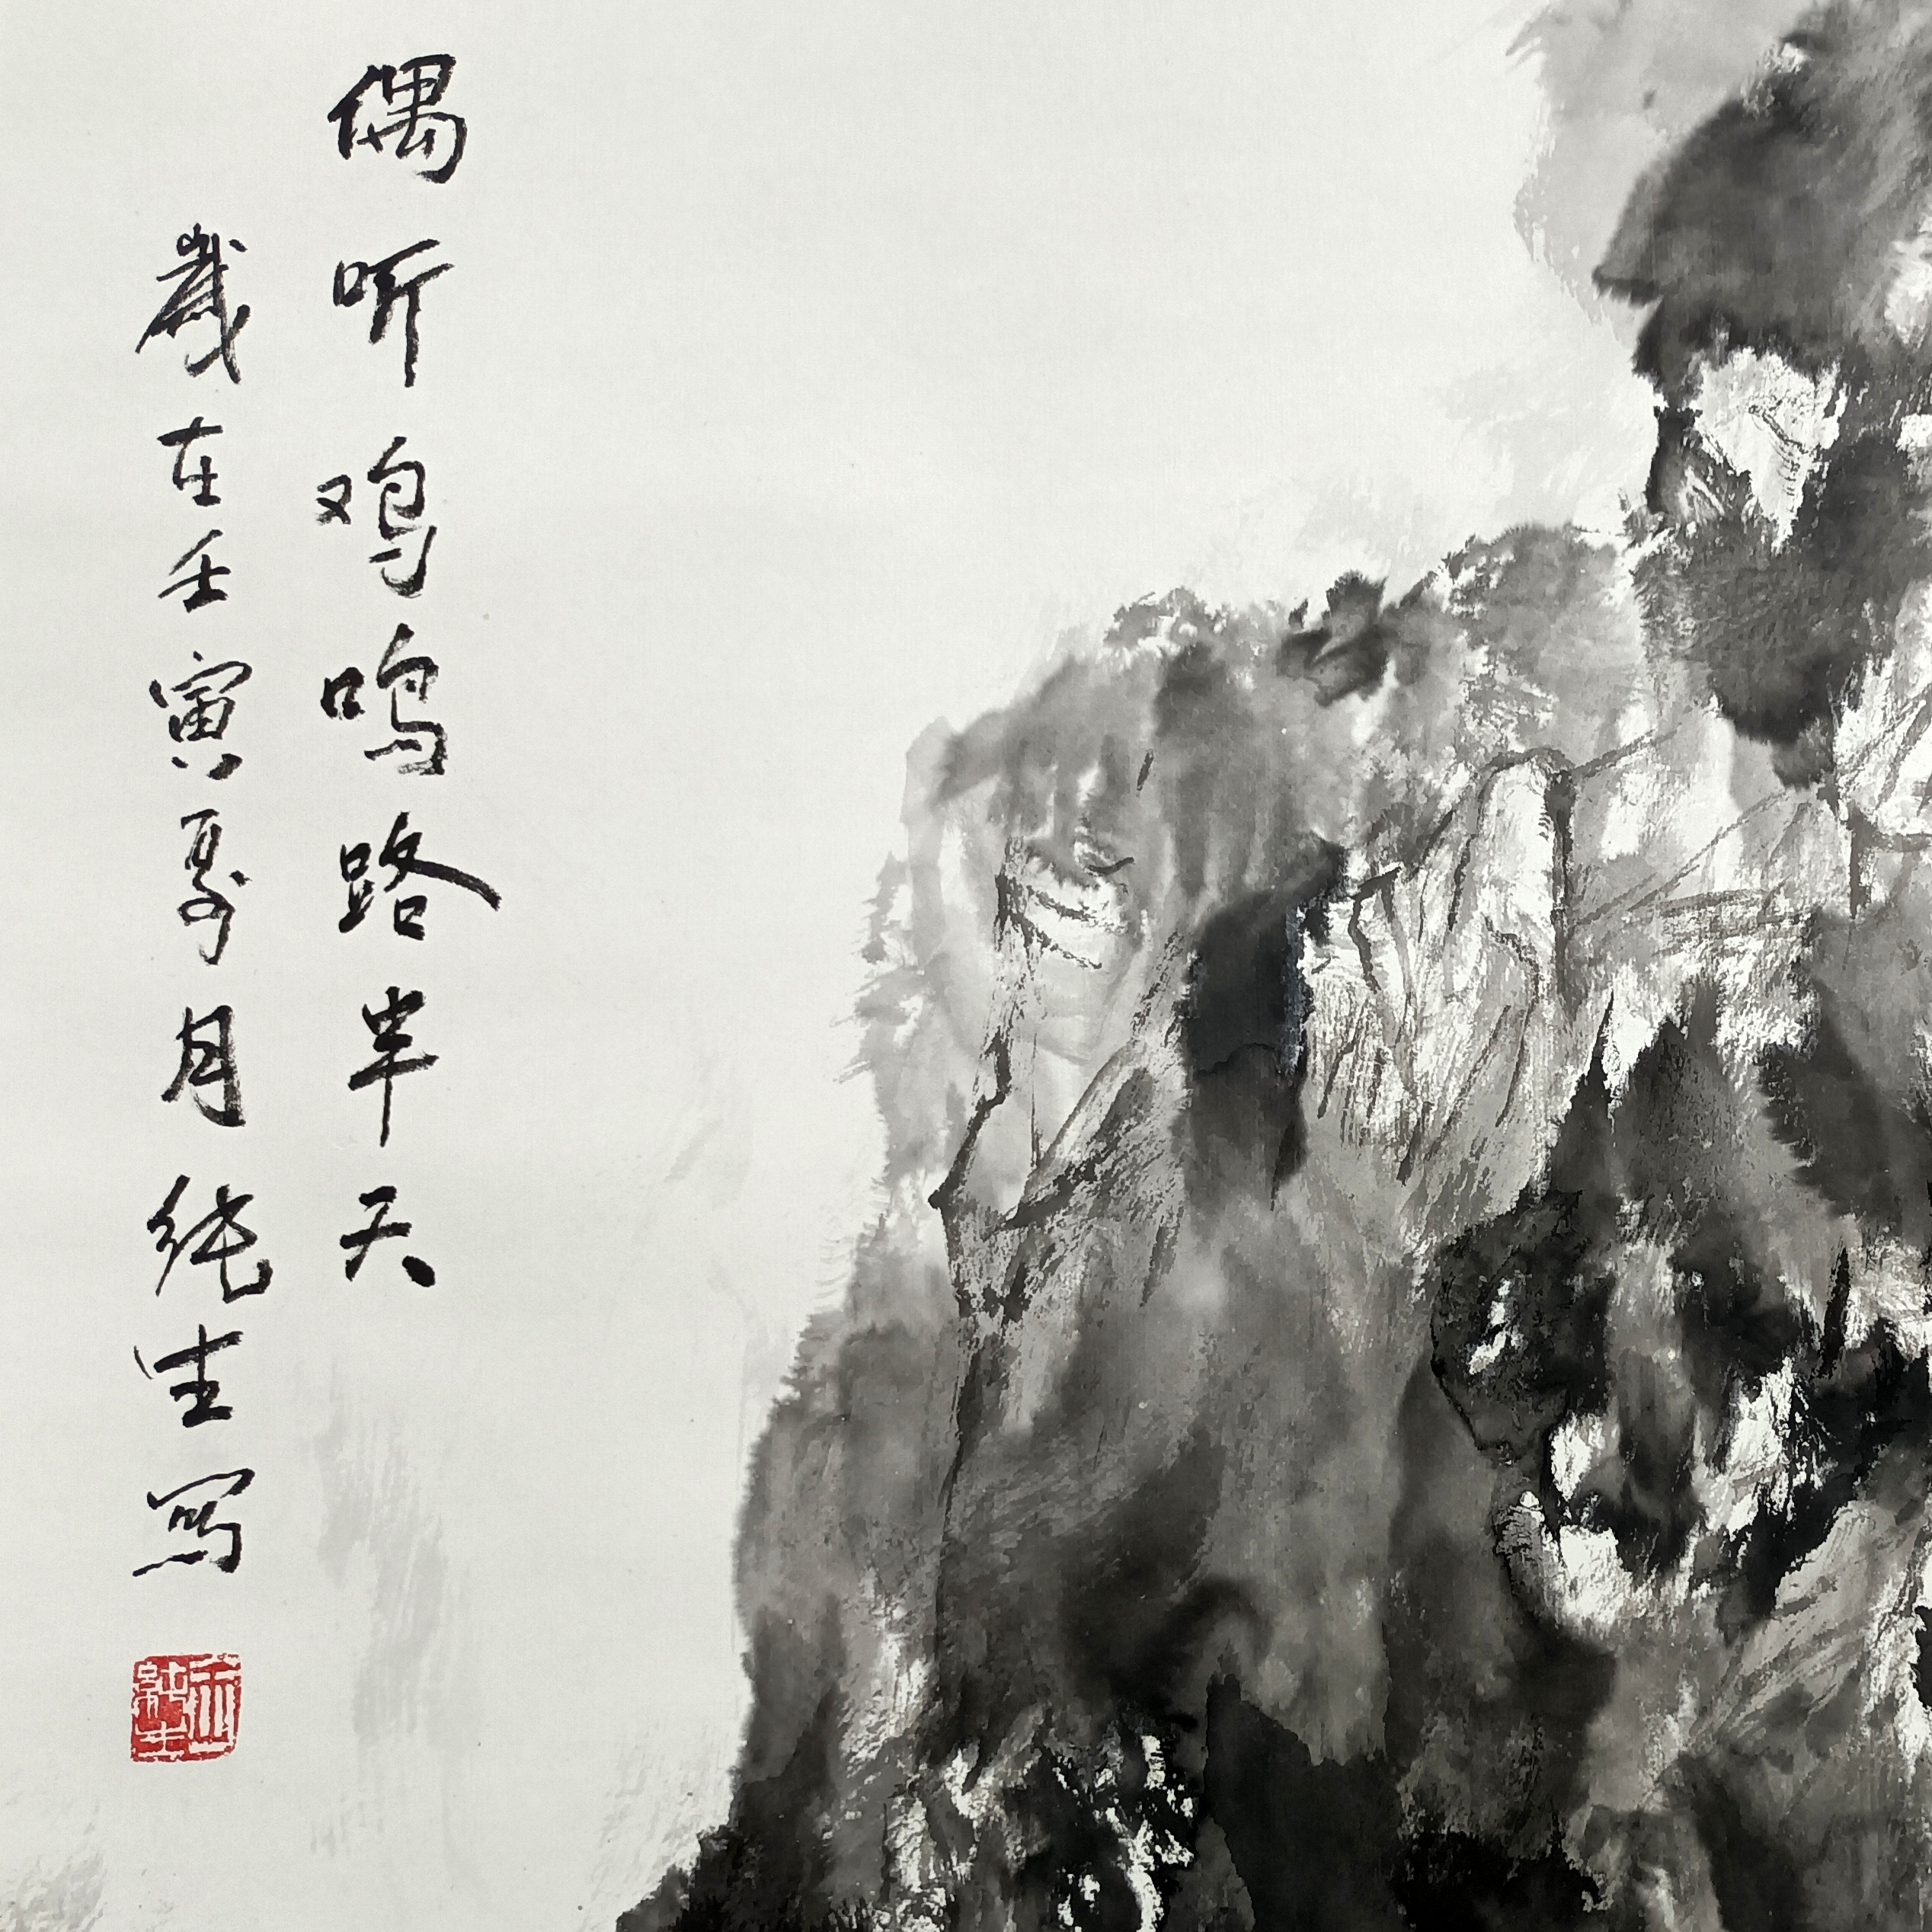 偶听鸡鸣路半天
岁在壬寅夏月纯生写